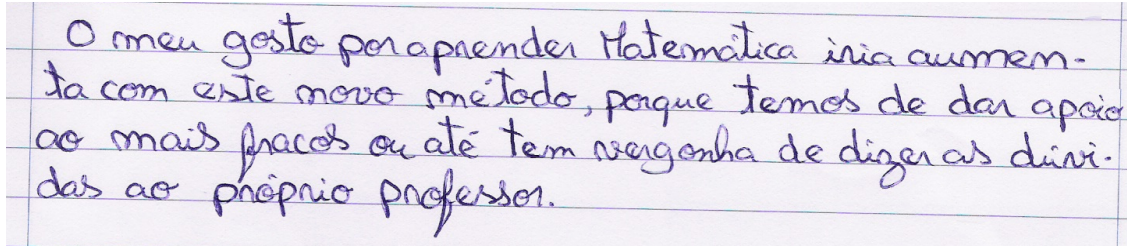 O meu gosto por aprender Matemática iria aumen-
ta com este novo método, porque temos de dar apoio
ao mais fracos ou até tem vergonha de dizer as dúvi-
das ao próprio professor.